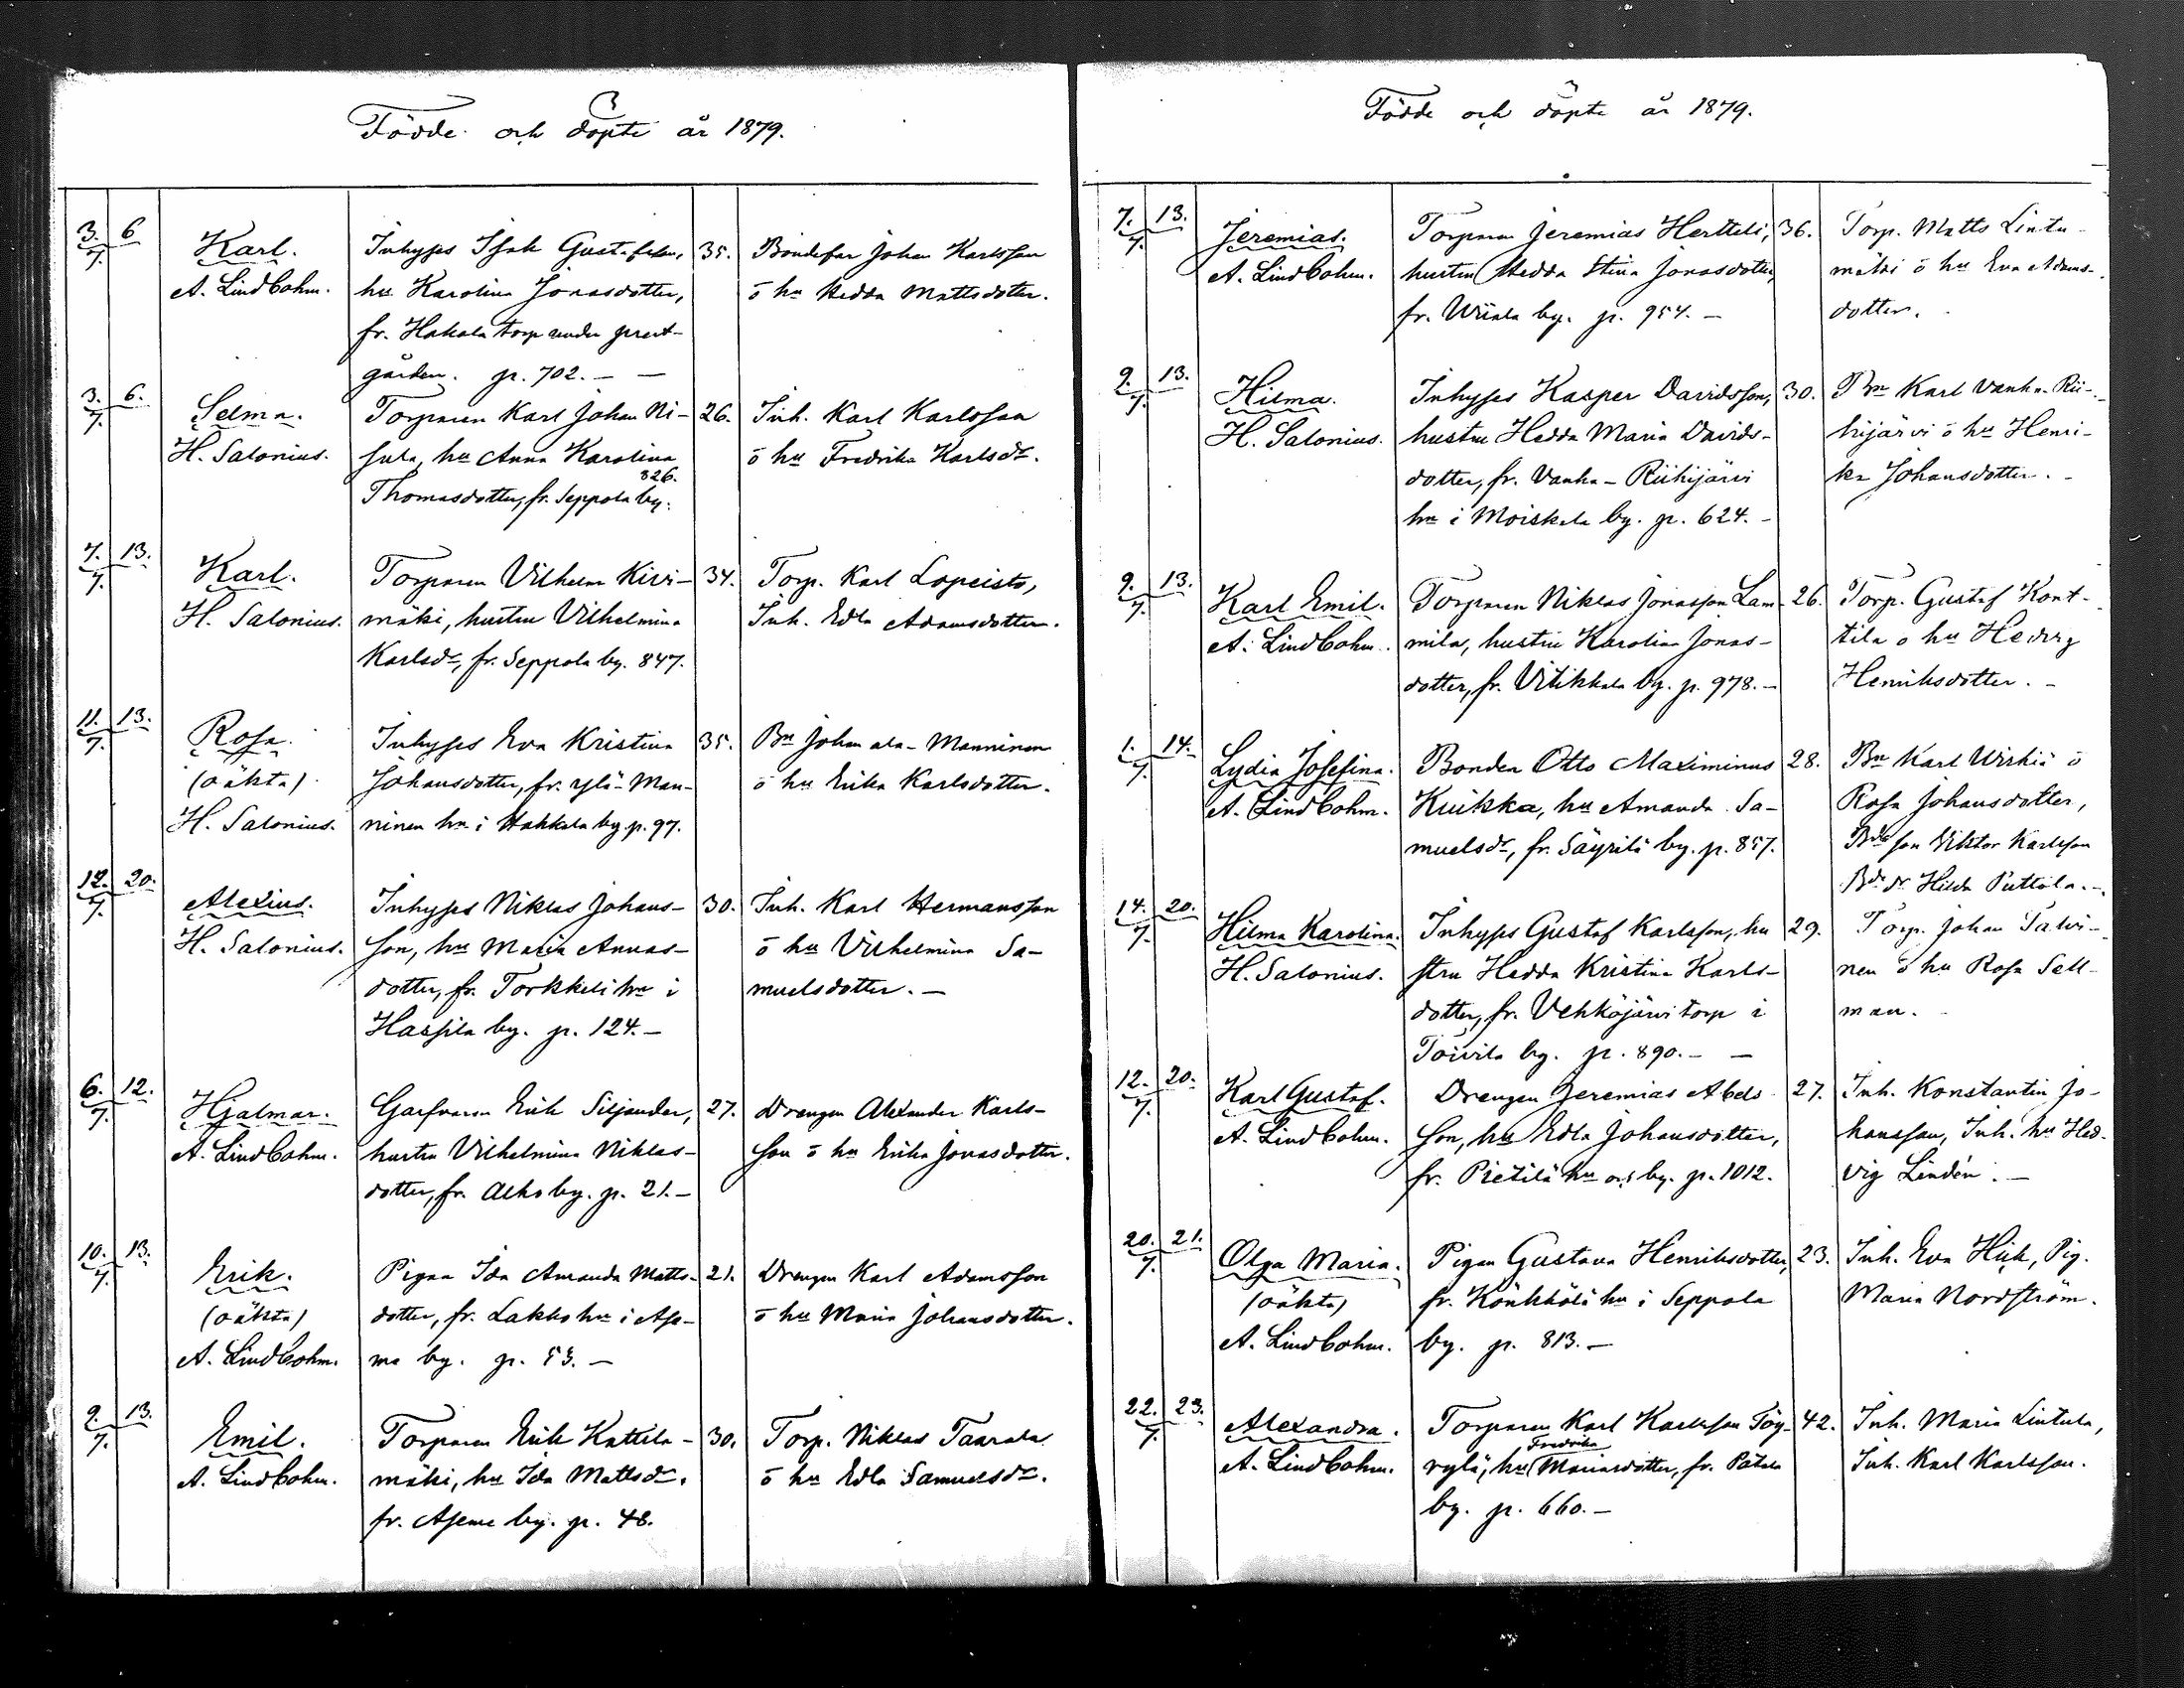 Födde och döpte år 1879.
3. 6
7.
Karl.
A. Lindbohm.
Inhyses Isak Gustafsson,
hu Karolina Jonasdotter,
fr. Hakala torp under prest-
gården. p. 702. — —
35.
Bondefar Johan Karlsson
o hu Hedda Mattsdotter.
3. 6.
7.
Selma.
H. Salonius.
Torparen Karl Johan Ni-
sula, hu Anna Karolina
826.
Thomasdotter, fr. Seppola by.
26.
Inh. Karl Karlsson
o hu Fredrika Karlsdr.
7. 13.
7.
Karl.
H. Salonius.
Torparen Vilhelm Kivi-
mäki, hustru Vilhelmina
Karlsdr, fr. Seppola by. 847.
34.
Torp. Karl Lopeisto,
Inh. Edla Adamsdotter.
11. 13.
7.
Rosa.
(oäkta)
H. Salonius.
Inhyses Eva Kristina
Johansdotter, fr. Ylä-Man-
ninen hn i Hakkala by. p. 97.
35.
Bn Johan ala-Manninen
o hu Erika Karlsdotter.
12. 20.
7.
Alexius.
H. Salonius.
Inhyses Niklas Johans-
son, hu Maria Annas-
dotter, fr. Torkkeli hn i
Haapila by. p. 124. —
30.
Inh. Karl Hermansson
o hu Vilhelmina Sa-
muelsdotter. —
6. 12.
7.
Hjalmar.
A. Lindbohm.
Garfvaren Erik Siljander,
hustru Vilhelmina Niklas-
dotter, fr. Alho by. p. 21. —
27.
Drengen Alexander Karls-
son o hu Erika Jonasdotter.
10. 13.
7.
Erik.
(oäkta)
A. Lindbohm.
Pigan Ida Amanda Matts-
dotter, fr. Lakko hn i Ase-
ma by. p. 53. —
21.
Drengen Karl Adamsson
o hu Maria Johansdotter.
9. 13.
7.
Emil.
A. Lindbohm.
Torparen Erik Kattila-
mäki, hu Ida Mattsdr.
fr. Aseme by. p. 48.
30.
Torp. Niklas Taarala
o hu Edla Samuelsdr.
Födde och döpte år 1879.
7. 13.
7.
Jeremias.
A. Lindbohm.
Torparen Jeremias Hertteli,
hustru Hedda Stina Jonasdotter,
fr. Wiiala by. p. 954. —
36.
Torp. Matts Lintu-
mäki o hu Eva Adams-
dotter.
9. 13.
7.
Hilma.
H. Salonius.
Inhyses Kasper Davidsson,
hustru Hedda Maria Davids-
dotter, fr. Vanha-Riihijärvi
hn i Moiskala by. p. 624. —
30.
Bn Karl Vanha-Rii-
hijärvi o hu Henri-
ka Johansdotter. —
9. 13.
7.
Karl Emil.
A. Lindbohm.
Torparen Niklas Jonasson Lam-
mila, hustru Karolina Jonas-
dotter, fr. Vitikkala by. p. 978. —
26.
Torp. Gustaf Kont-
tila o hu Hedvig
Henriksdotter. —
1. 14.
7.
Lydia Josefina.
A. Lindbohm.
Bonden Otto Maximinus
Kuikka, hu Amanda Sa-
muelsdr, fr. Säyrilä by. p. 857.
28.
Bn Karl Wirkiä o
Rosa Johansdotter,
Bde son Viktor Karlsson
Bde dr Hilda Puttola. —
14. 20.
7.
Hilma Karolina.
H. Salonius.
Inhyses Gustaf Karlsson, hu
stru Hedda Kristina Karls-
dotter, fr. Vehköjärvi torp i
Toivila by. p. 890. — —
29.
Torp. Johan Talvi-
nen o hu Rosa Sell-
man.
12. 20.
7.
Karl Gustaf.
A. Lindbohm.
Drengen Jeremias Abels
son, hu Edla Johansdotter,
fr. Pietilä hn o by. p. 1012.
27.
Inh. Konstantin Jo-
hansson, Inh. hu Hed-
vig Lindén. —
20. 21.
7.
Olga Maria.
(oäkta)
A. Lindbohm.
Pigan Gustava Henriksdotter,
fr. Könkkölä hn i Seppola
by. p. 813. —
23.
Inh. Eva Hiik, Pig.
Maria Nordström.
22. 23.
7.
Alexandra.
A. Lindbohm.
Torparen Karl Karlsson Töy-
Fredrika
rylä, hu Mariasdotter, fr. Pätola
by. p. 660. —
42.
Inh. Maria Lintula,
Inh. Karl Karlsson.